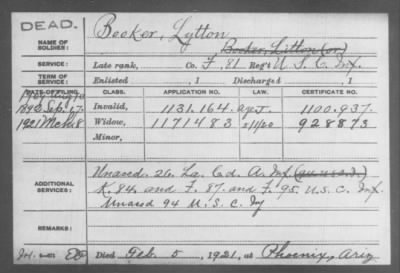 DEAD.
NAME OF SOLDIER: Booker, Lytton
Booker, Litton (or)
SERVICE: Late rank, Co. F, 81 Reg't U. S. C. Inf.
TERM OF SERVICE: Enlisted , 1 Discharged , 1
DATE OF FILING. CLASS. APPLICATION NO. LAW. CERTIFICATE NO.
Invalid, 1131.164. 1100.937.
1921 Mch 8 Widow, 1171483 928873
Minor,
ADDITIONAL SERVICES: Unassd. 26. La. Cd. A. Inf.
K. 84. and F. 87. and F. 95. U.S. C. Inf.
Unassd 94 U. S. C. Inf
REMARKS:
Died Feb. 5, 1921, at Phoenix, Ariz